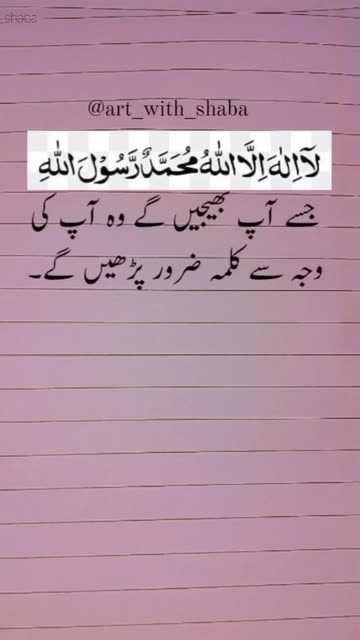 _shaba
@art_with_shaba
لَآ اِلٰهَ اِلَّا اللّٰهُ مُحَمَّدٌ رَّسُوْلَ اللّٰهِ
جسے آپ بھیجیں گے وہ آپ کی
وجہ سے کلمہ ضرور پڑھیں گے۔